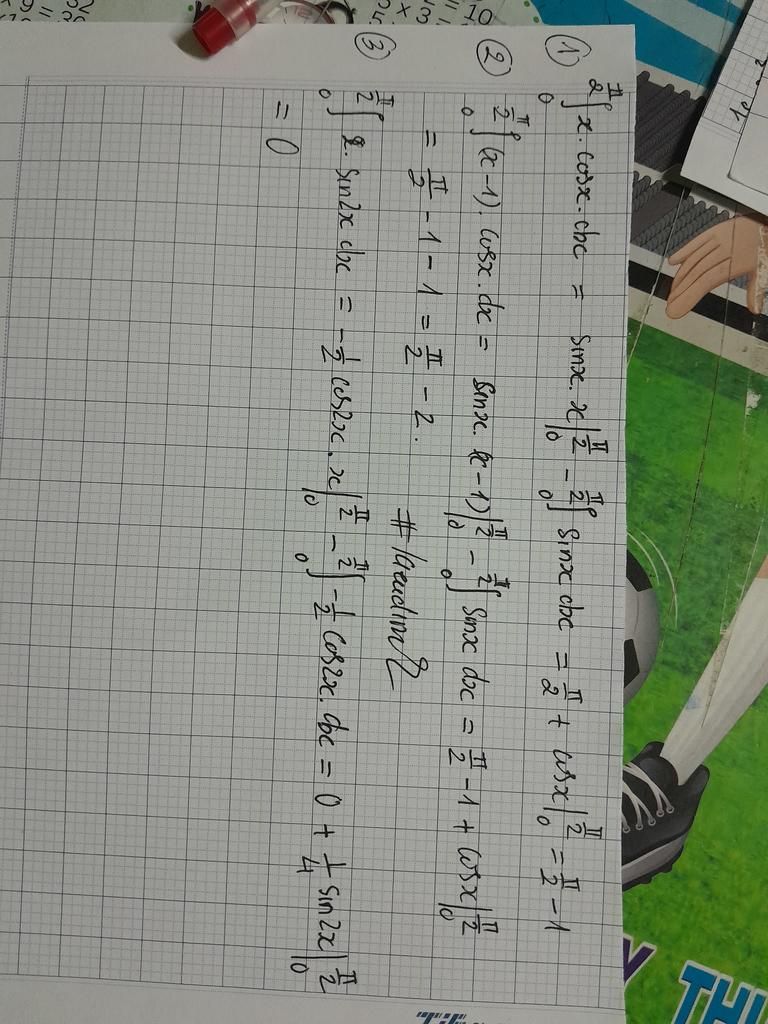 ① π/2 ∫ 0 x. cosx. dx = sinx. x | π/2 0 - π/2 ∫ 0 sinx dx = π/2 + cosx | π/2 0 = π/2 - 1
② π/2 ∫ 0 (x-1). cosx. dx = sinx. (x-1) | π/2 0 - π/2 ∫ 0 sinx dx = π/2 - 1 + cosx | π/2 0
= π/2 - 1 - 1 = π/2 - 2.
③ π/2 ∫ 0 x. sin2x dx = -1/2 cos2x. x | π/2 0 - π/2 ∫ 0 -1/2 cos2x. dx = 0 + 1/4 sin2x | π/2 0
= 0
THI